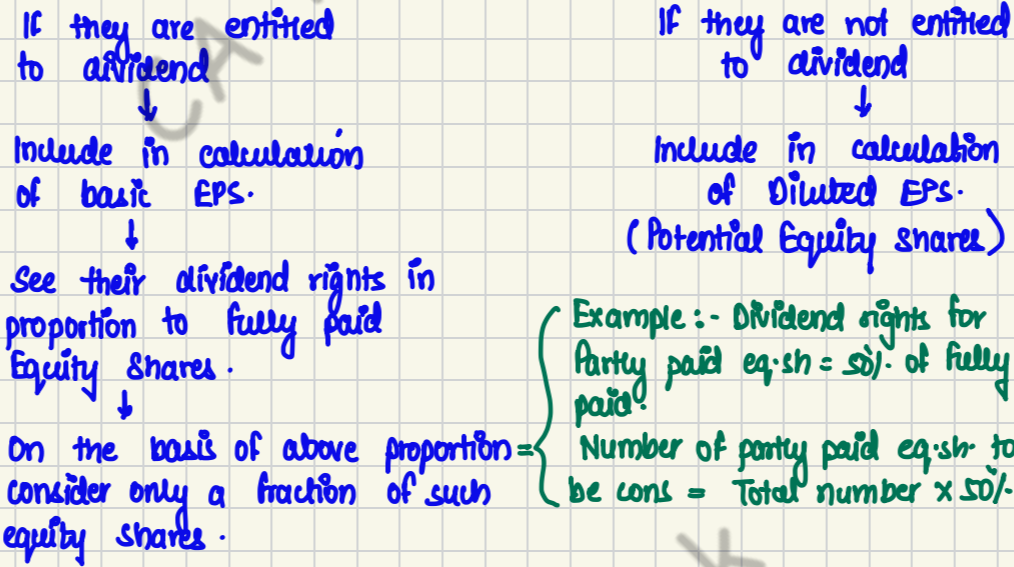 If they are entitled
to dividend
↓
Include in calculation
of basic EPS.
↓
See their dividend rights in
proportion to fully paid
Equity Shares.
↓
On the basis of above proportion =
consider only a fraction of such
equity shares.
If they are not entitled
to dividend
↓
Include in calculation
of Diluted EPS.
(Potential Equity Shares)
Example :- Dividend rights for
Partly paid eq.sh = 50%. of fully
paid.
Number of partly paid eq.sh. to
be cons = Total number x 50%.
CA
K